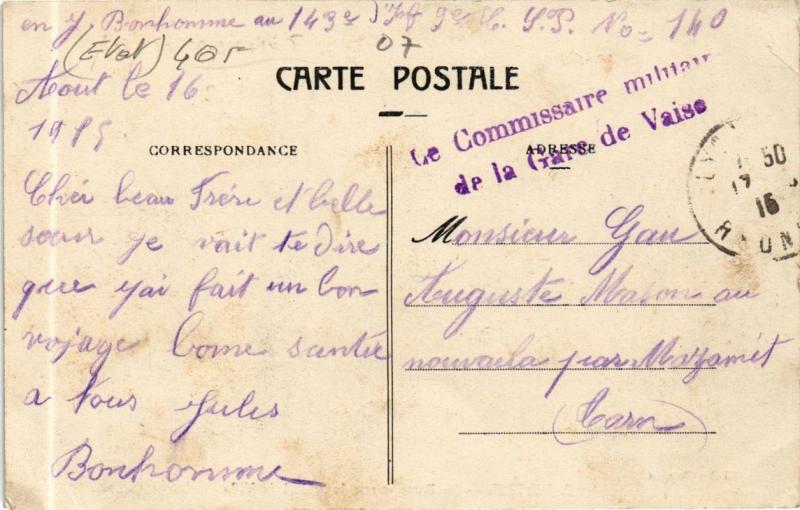 en J Bonhomme au 143e d'Inf 9e C. S.P. No = 140
(Etat) 40r
07
Aout le 16
1915
CARTE POSTALE
Le Commissaire militair
de la Gare de Vaise
CORRESPONDANCE
ADRESSE
LY
50
17
15
RHON
Chér beau Frére et belle
soeur je vait te dire
que j'ai fait un bon
voyage bonne santée
a tous Jules
Bonhomme
Monsieur Gau
Auguste Mason au
nouvela par Mazamét
(Tarn)